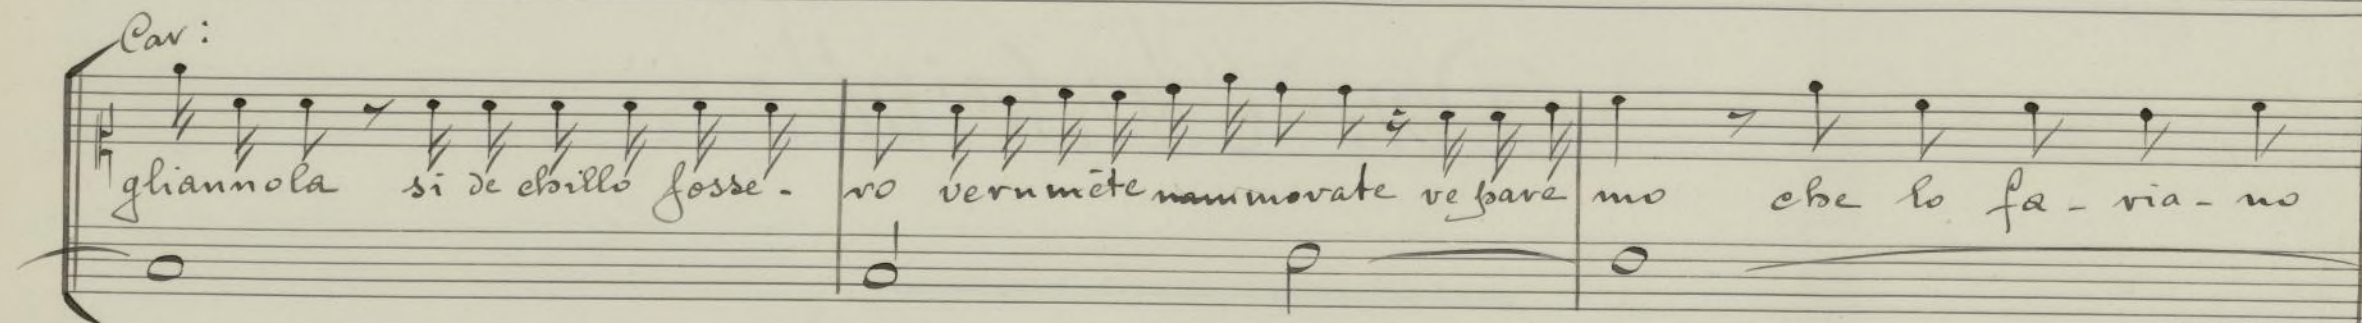 Car:
gliannola si de chillo fosse - ro verumēte nammorate ve pare mo che lo fa - ria - no